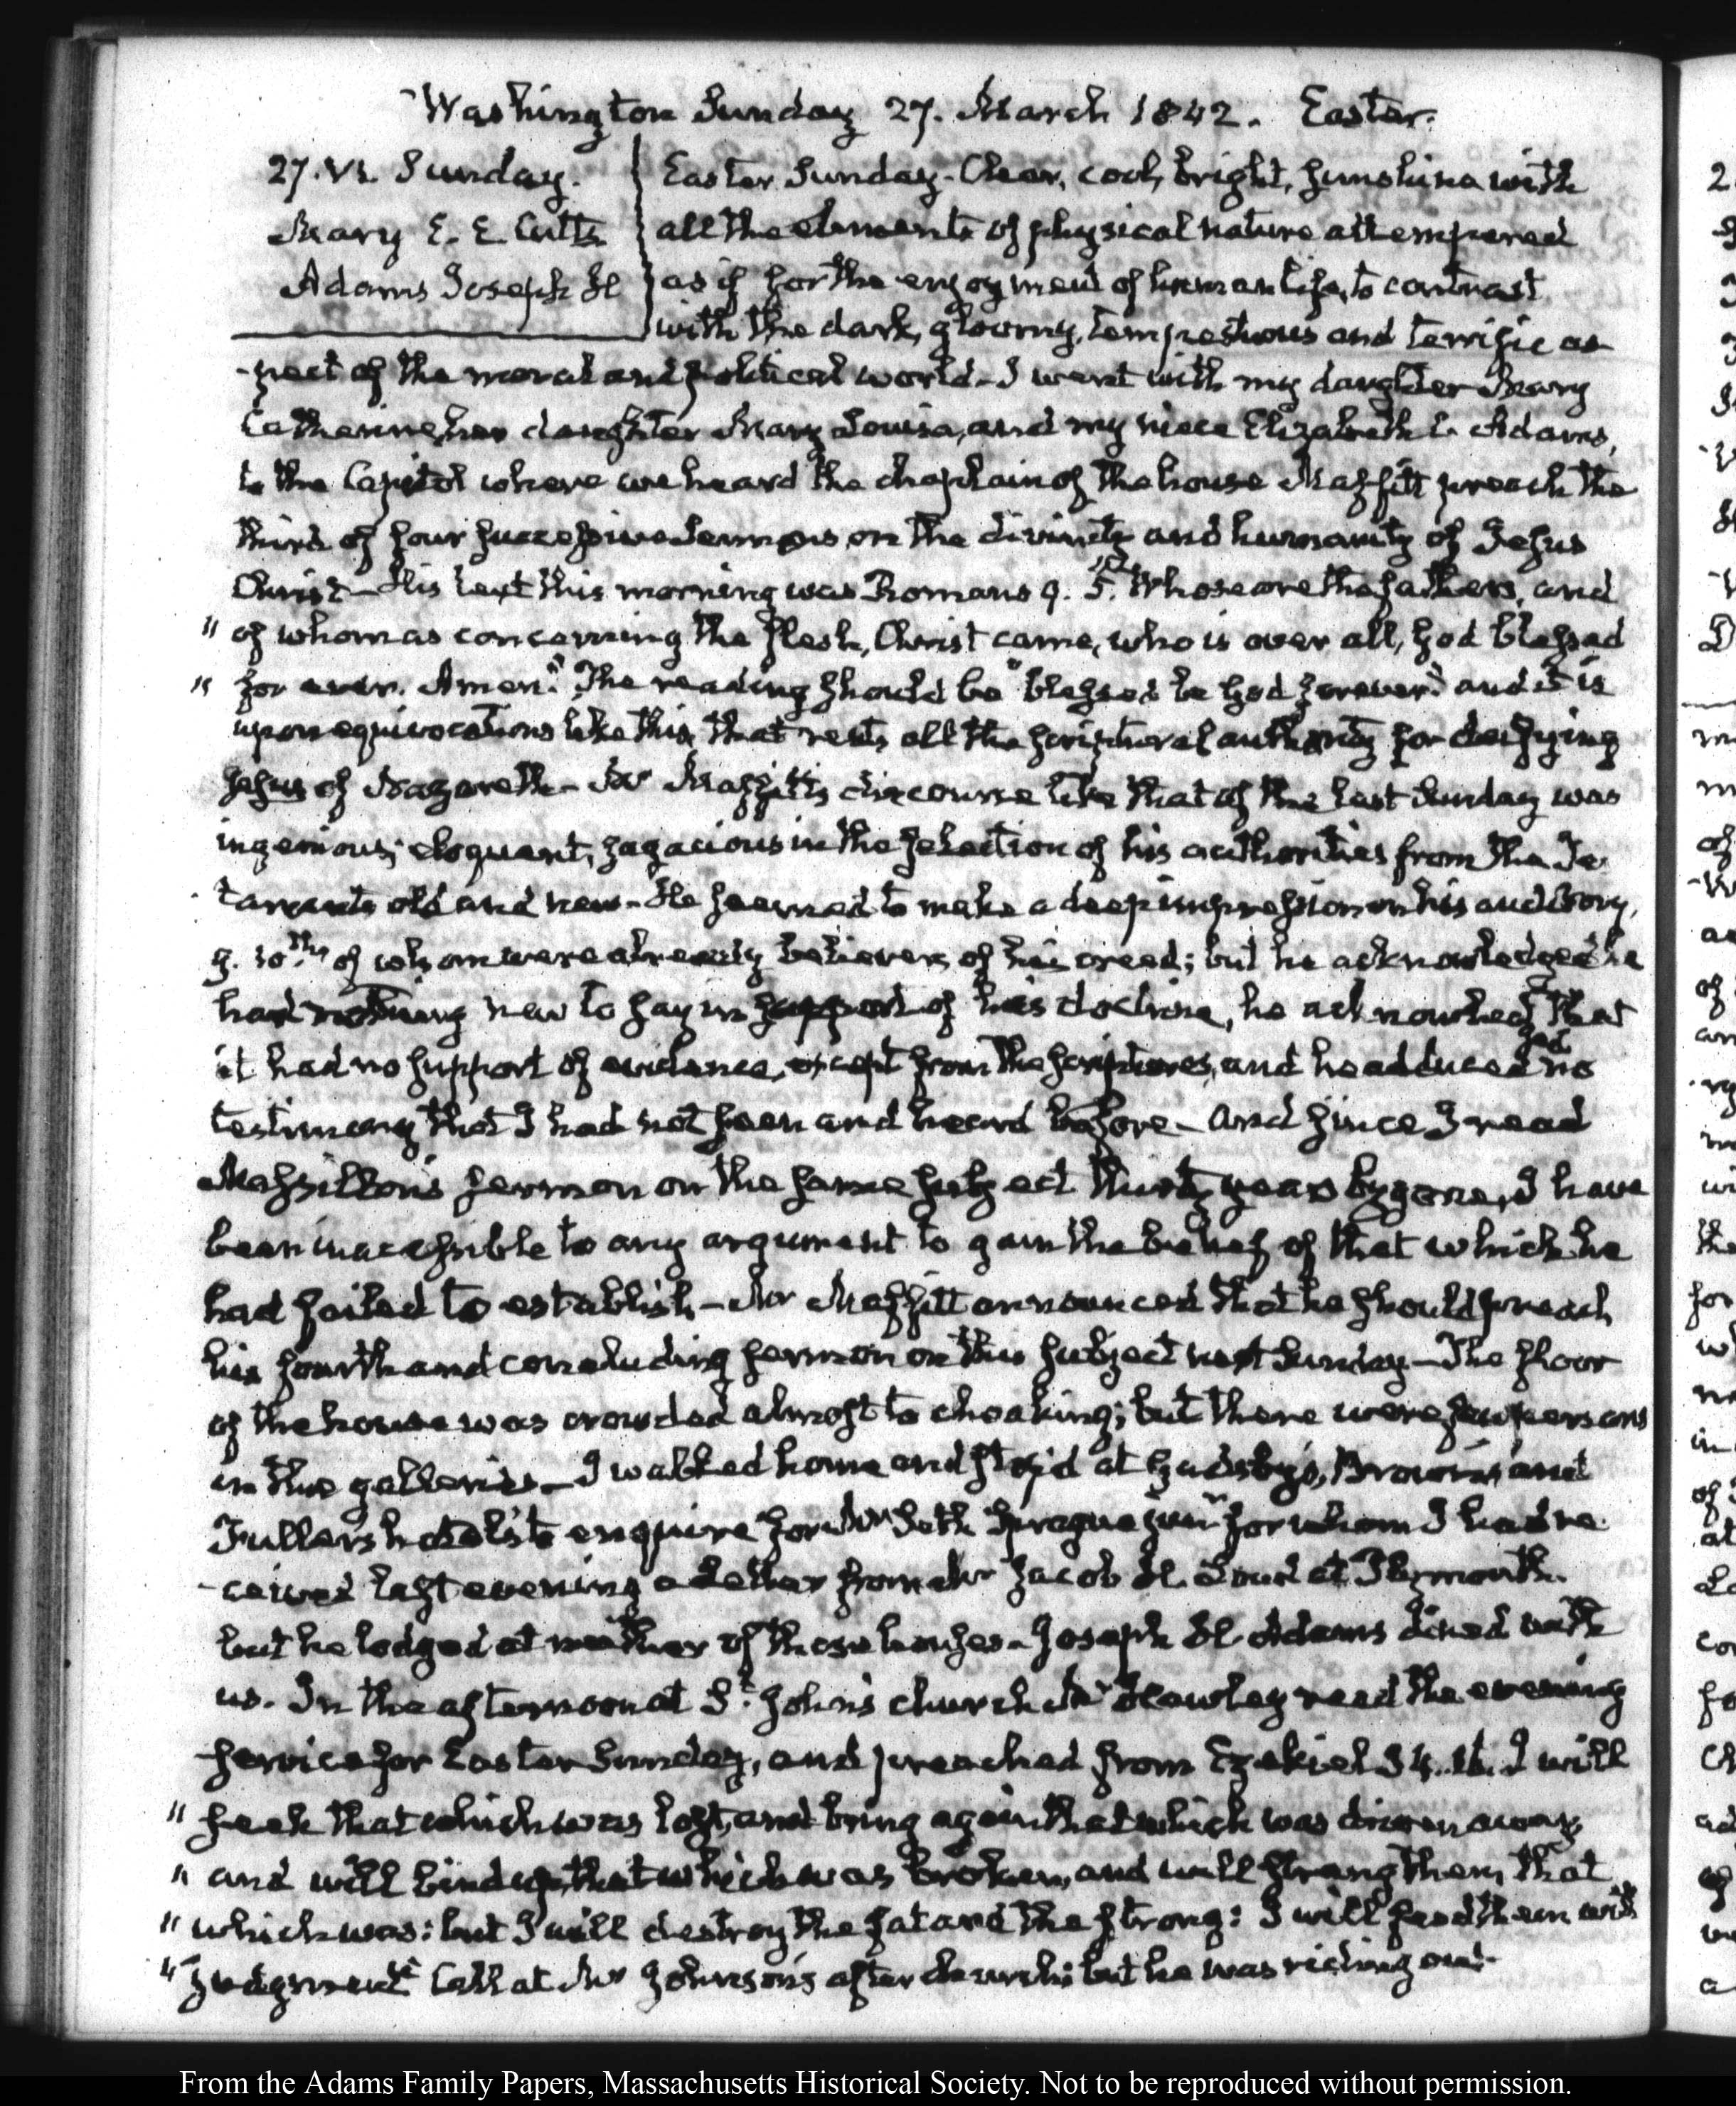 Washington Sunday 27. March 1842. Easter.
27. VI. Sunday.
Mary E. E. Cutts
Adams Joseph H
Easter Sunday- Clear, cool, bright, sunshine with
all the elements of physical nature attempered
as if for the enjoyment of human life, to contrast
with the dark, gloomy, tempestuous and terrific as-
-pect of the moral and political world- I went with my daughter Mary
Catherine, her daughter Mary Louisa, and my niece Elizabeth C. Adams,
to the Capitol where we heard the chaplain of the house Maffitt preach the
third of four successive Sermons on the divinity and humanity of Jesus
Christ- His text this morning was Romans 9. 5. "Whose are the fathers, and
" of whom as concerning the flesh, Christ came, who is over all, God blessed
" for ever. Amen." The reading should be "blessed be God forever" and it is
upon equivocations like this, that rests all the scriptural authority for deifying
Jesus of Nazareth- Mr Maffitt's discourse like that of the last Sunday was
ingenious, eloquent, sagacious in the selection of his authorities from the Te-
-taments old and new- He seemed to make a deep impression on his auditory,
9. 10ths of whom were already believers of his creed; but he acknowledged he
had nothing new to say in support of his doctrine, he acknowledged that
it had no support of evidence, except from the scriptures, and he adduced no
testimony that I had not seen and heard before- And since I read
Massillon's sermon on the same subject thirty years bygone, I have
been inaccessible to any argument to gain the belief of that which he
had failed to establish- Mr Maffitt announced that he should preach
his fourth and concluding sermon on this subject next Sunday- The floor
of the house was crowded almost to choaking; but there were few persons
in the galleries- I walked home and stop'd at Gadsby's, Brown's and
Fullers hotels to enquire for Mr Seth Sprague junr for whom I had re-
-ceived last evening a letter from Mr Jacob H. Loud at Plymouth.
but he lodged at neither of those houses- Joseph H. Adams dined with
us. In the afternoon at St. John's church Mr Hawley read the evening
service for Easter Sunday, and preached from Ezekiel 34. 16. I will
" seek that which was lost, and bring again that which was driven away,
" and will bind up that which was broken, and will strengthen, that
" which was: but I will destroy the fat and the strong: I will feed them with
" judgment" Call at Mr Johnson's after church; but he was riding out-
From the Adams Family Papers, Massachusetts Historical Society. Not to be reproduced without permission.